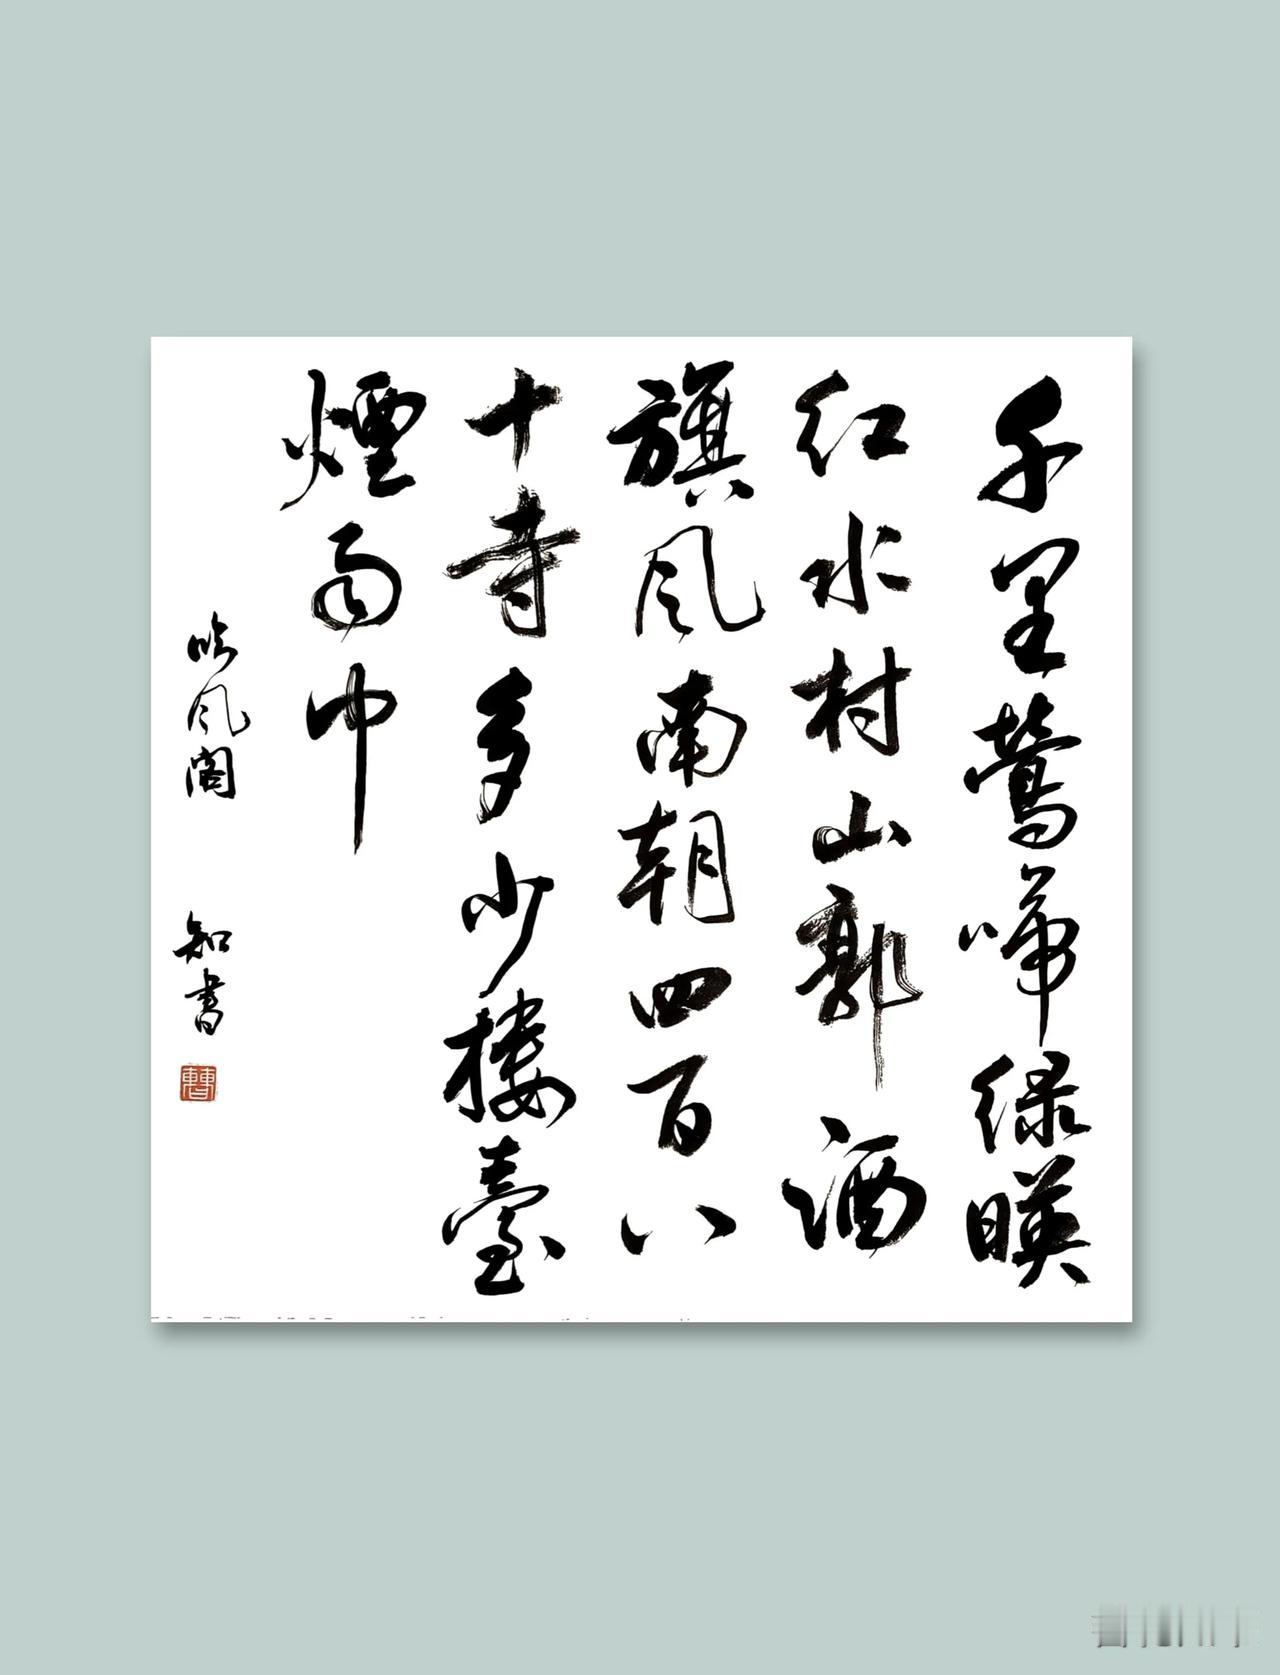 千里鶯啼绿暎
红水村山郭酒
旗风南朝四百八
十寺多少楼臺
煙雨中
吟风阁 知書